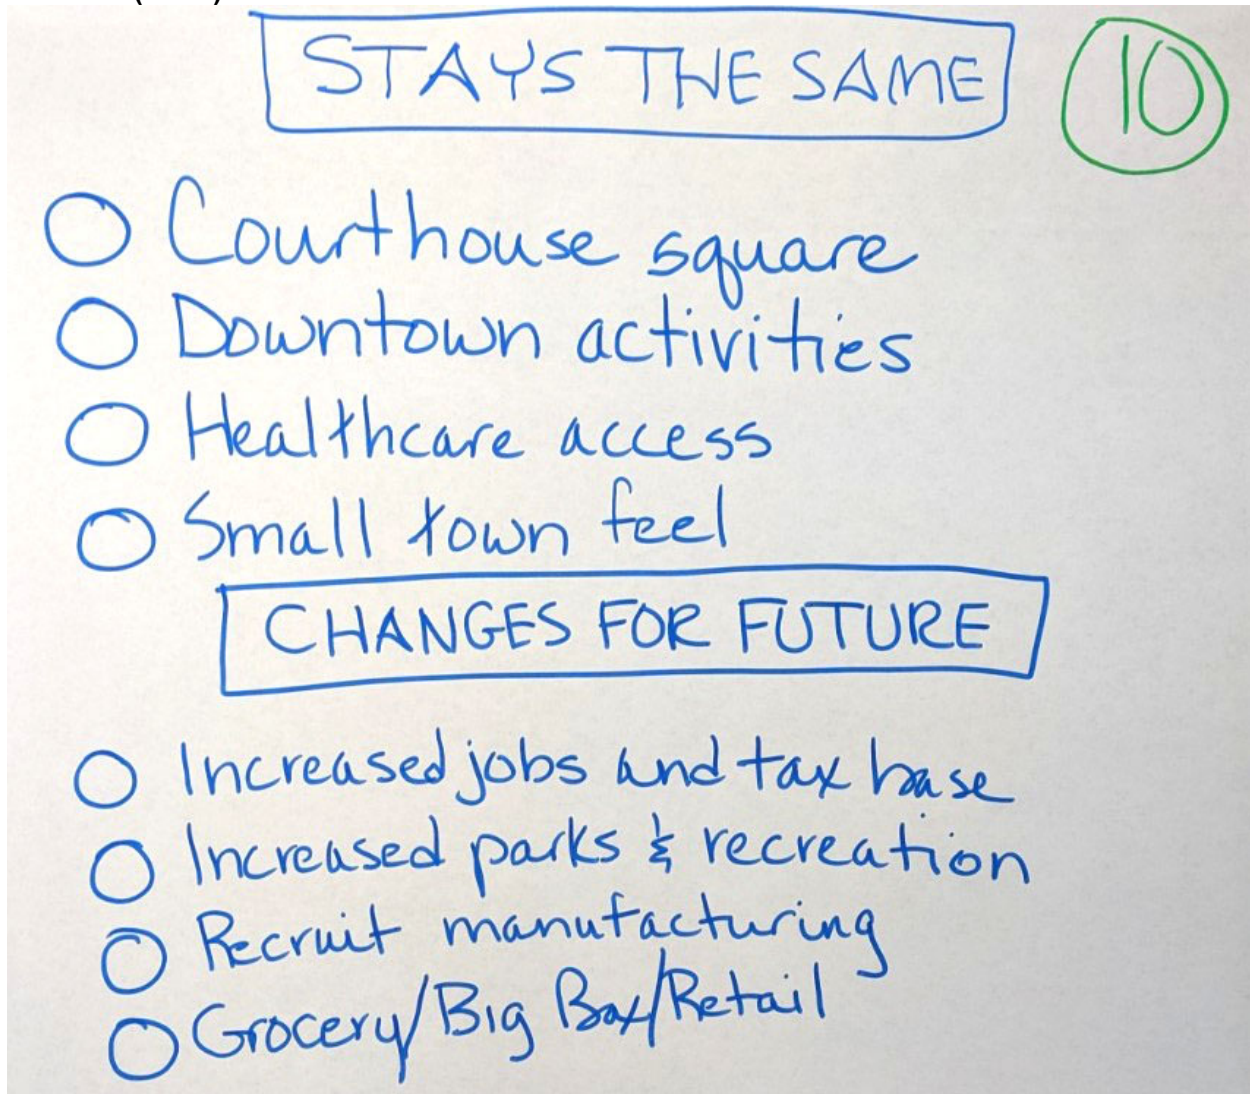 STAYS THE SAME
10
Courthouse square
Downtown activities
Healthcare access
Small town feel
CHANGES FOR FUTURE
Increased jobs and tax base
Increased parks & recreation
Recruit manufacturing
Grocery/Big Box/Retail